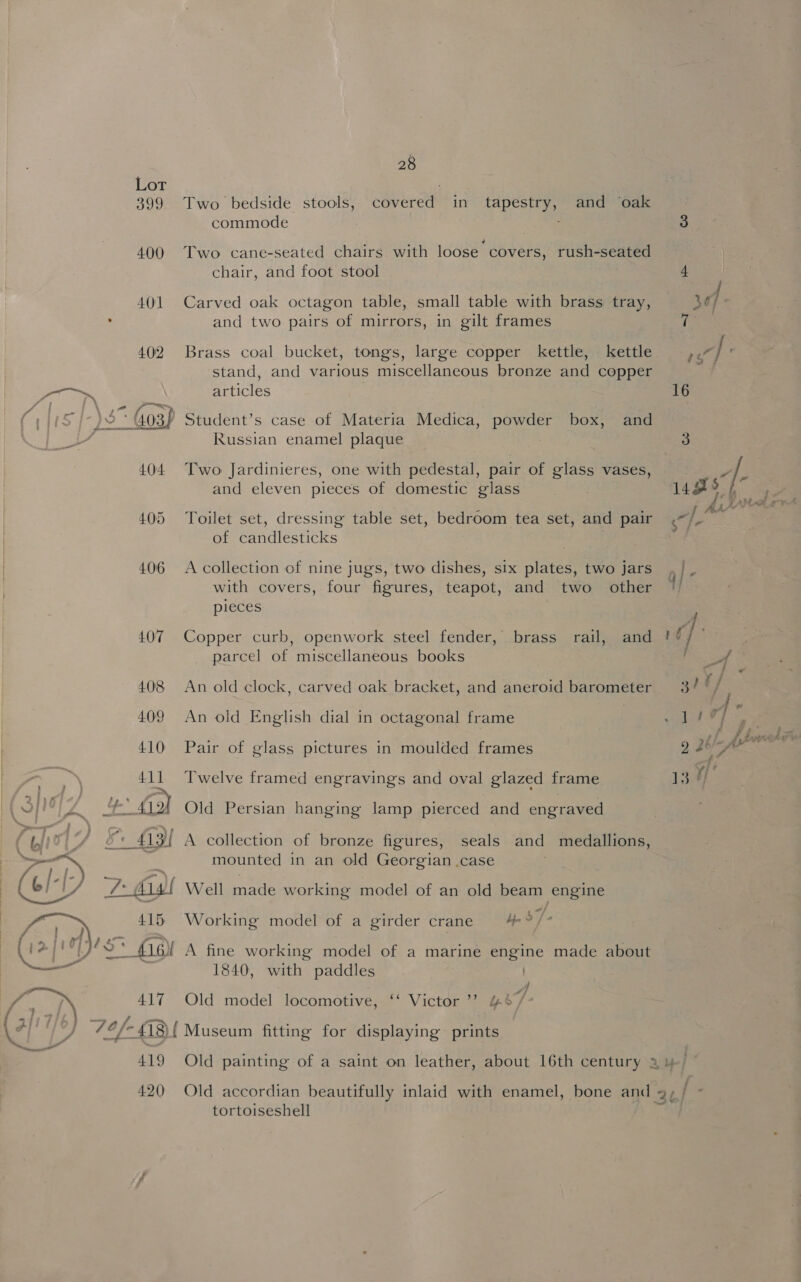 28
Lot
399 Two bedside stools, covered in tapestry, and oak
commode 3
400 Two cane-seated chairs with loose covers, rush-seated
chair, and foot stool 4
401 Carved oak octagon table, small table with brass tray, 30/-
and two pairs of mirrors, in gilt frames 7
402 Brass coal bucket, tongs, large copper kettle, kettle
stand, and various miscellaneous bronze and copper
articles 16
403 Student's case of Materia Medica, powder box, and
Russian enamel plaque 3
404 Two Jardinieres, one with pedestal, pair of glass vases,
and eleven pieces of domestic glass 14
405 Toilet set, dressing table set, bedroom tea set, and pair
of candlesticks
406 A collection of nine jugs, two dishes, six plates, two jars
with covers, four figures, teapot, and two other
pieces
407 Copper curb, openwork steel fender, brass rail, and
parcel of miscellaneous books
408 An old clock, carved oak bracket, and aneroid barometer 3
409 An old English dial in octagonal frame 1
410 Pair of glass pictures in moulded frames 2
411 Twelve framed engravings and oval glazed frame 13
412 Old Persian hanging lamp pierced and engraved
413 A collection of bronze figures, seals and medallions,
mounted in an old Georgian case
414 Well made working model of an old beam engine
415 Working model of a girder crane
416 A fine working model of a marine engine made about
1840, with paddles
417 Old model locomotive, "Victor"
418 Museum fitting for displaying prints
419 Old painting of a saint on leather, about 16th century
420 Old accordian beautifully inlaid with enamel, bone and
tortoiseshell